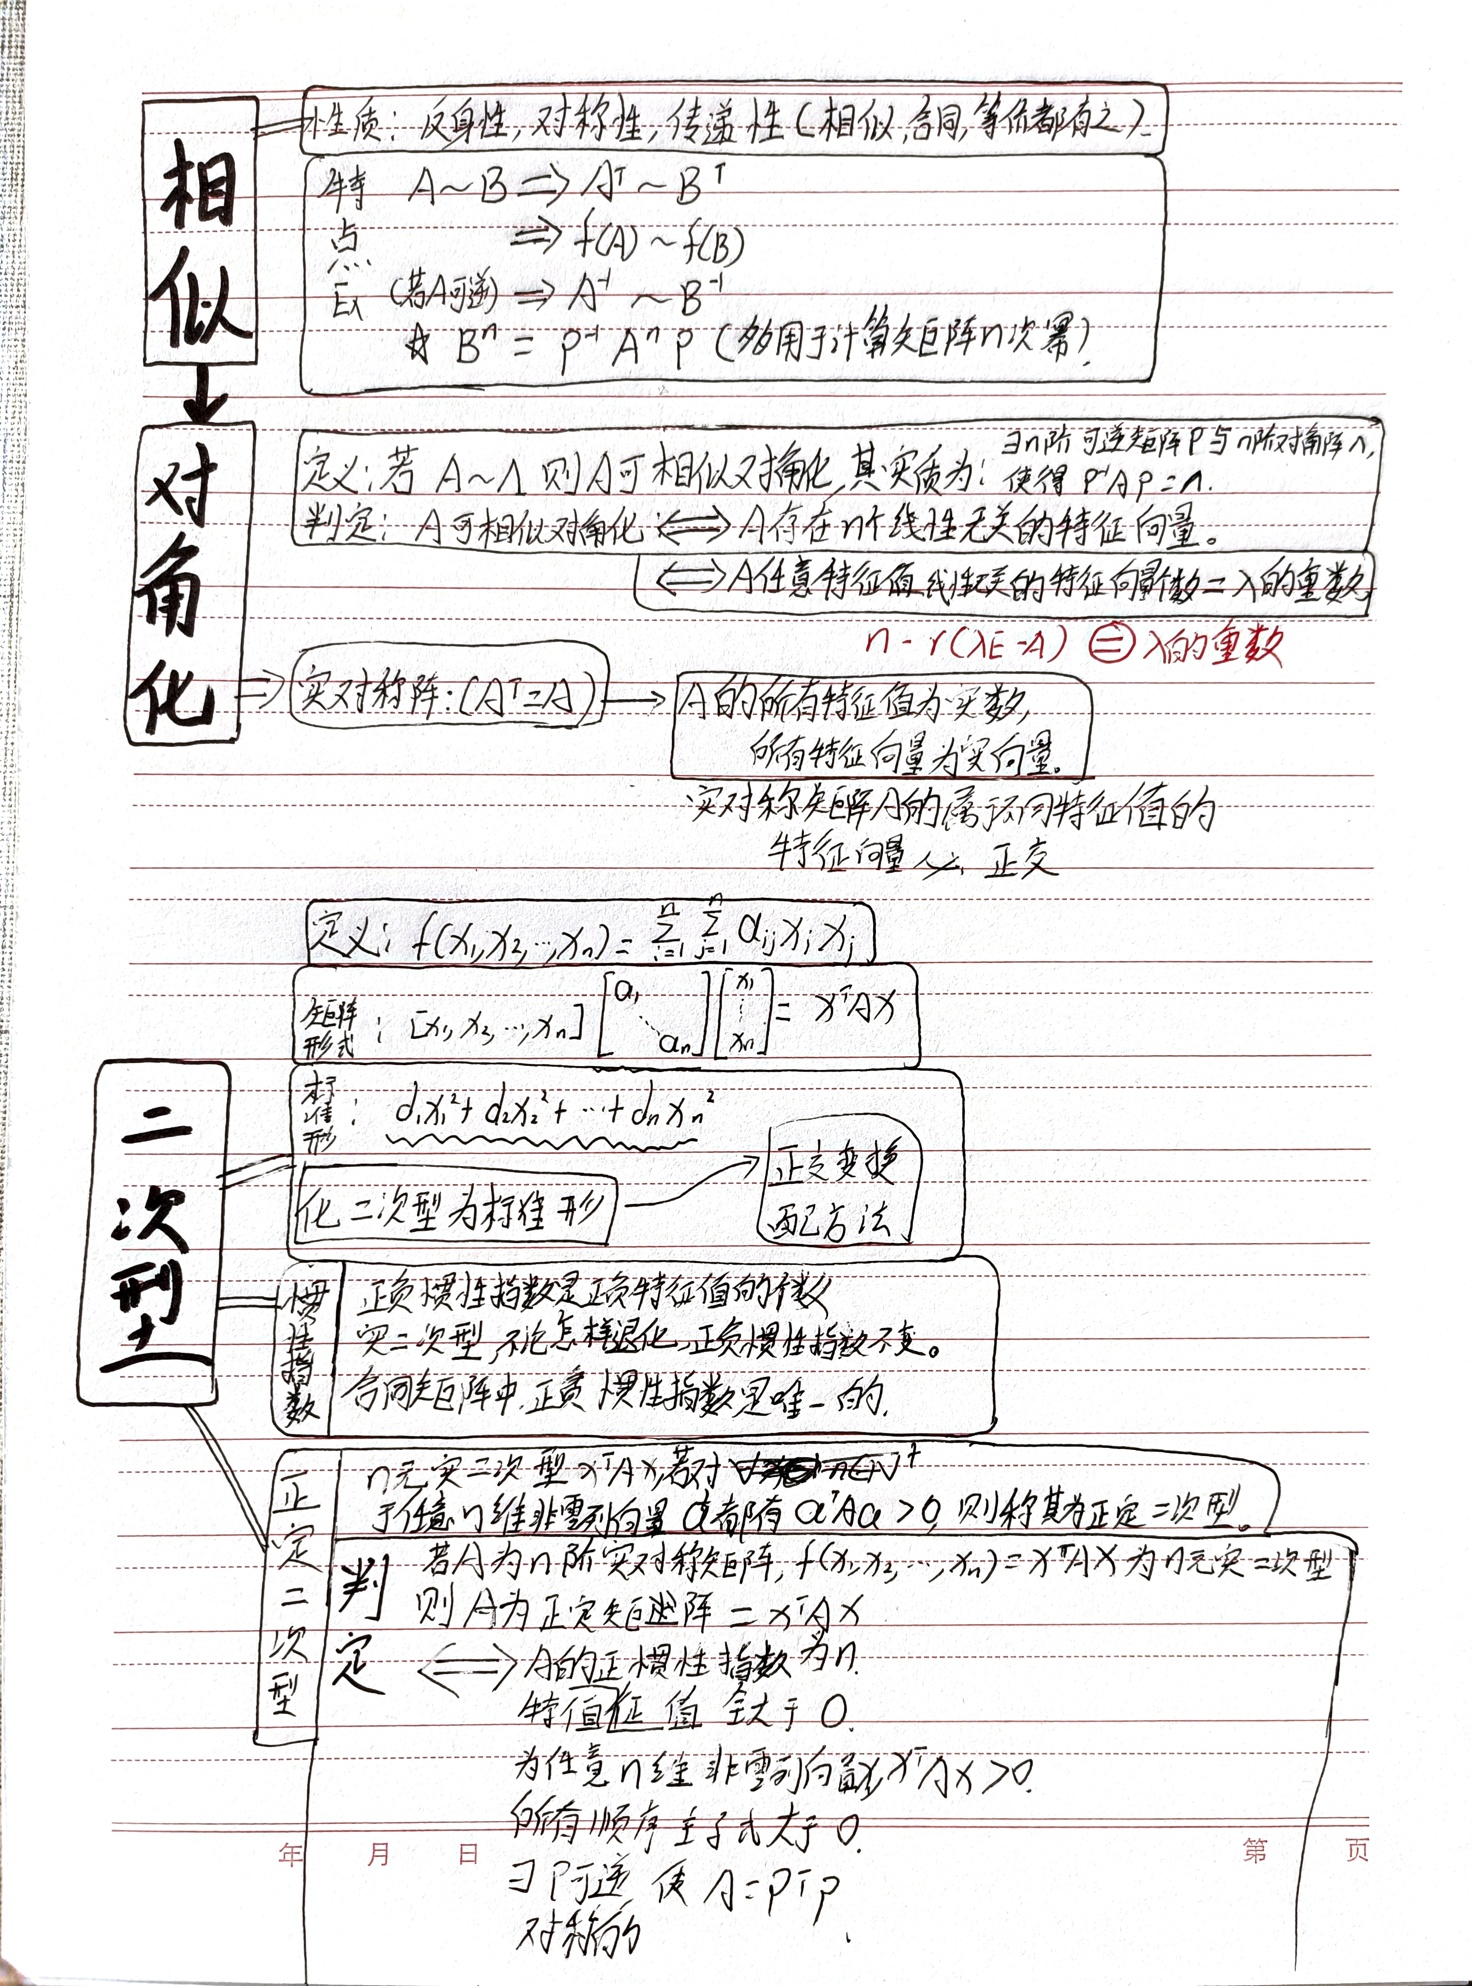 相似
性质：反身性，对称性，传递性（相似，合同，等价都有之）
特点 A~B ⟹ Aᵀ~Bᵀ
⟹ f(A)~f(B)
（若A可逆）⟹ A⁻¹~B⁻¹
☆ Bⁿ = P⁻¹AⁿP（多用于计算矩阵n次幂）
对角化
定义：若A~Λ则A可相似对角化，其实质为：∃n阶可逆矩阵P与n阶对角阵Λ，
使得P⁻¹AP=Λ.
判定：A可相似对角化 ⟺ A存在n个线性无关的特征向量。
⟺ A任意特征值线性无关的特征向量个数=λ的重数。
n-r(λE-A) ⊜ λ的重数
⟹ 实对称阵：(Aᵀ=A) → A的所有特征值为实数，
所有特征向量为实向量。
实对称矩阵A的属于不同特征值的
特征向量 必 正交
二次型
定义：f(x₁,x₂,…,xₙ)=∑ⁿᵢ₌₁∑ⁿⱼ₌₁ aᵢⱼxᵢxⱼ
矩阵形式：[x₁,x₂,…,xₙ][a₁ ⋱ aₙ][x₁ ⋮ xₙ]=xᵀAx
标准形：d₁x₁²+d₂x₂²+…+dₙxₙ²
化二次型为标准形 → 正交变换
配方法
惯性指数
正负惯性指数是正负特征值的个数
实二次型，不论怎样退化，正负惯性指数不变。
合同矩阵中，正负惯性指数是唯一的.
正定二次型
n元实二次型xᵀAx，若对
于任意n维非零列向量α都有αᵀAα>0，则称其为正定二次型。
判定
若A为n阶实对称矩阵，f(x₁,x₂,…,xₙ)=xᵀAx为n元实二次型
则A为正定矩阵=xᵀAx
⟺ A的正惯性指数为n.
特值征值 全大于0.
为任意n维非零列向量x,xᵀAx>0.
所有顺序主子式大于0.
∃P可逆，使A=PᵀP
对称的
年 月 日 第 页